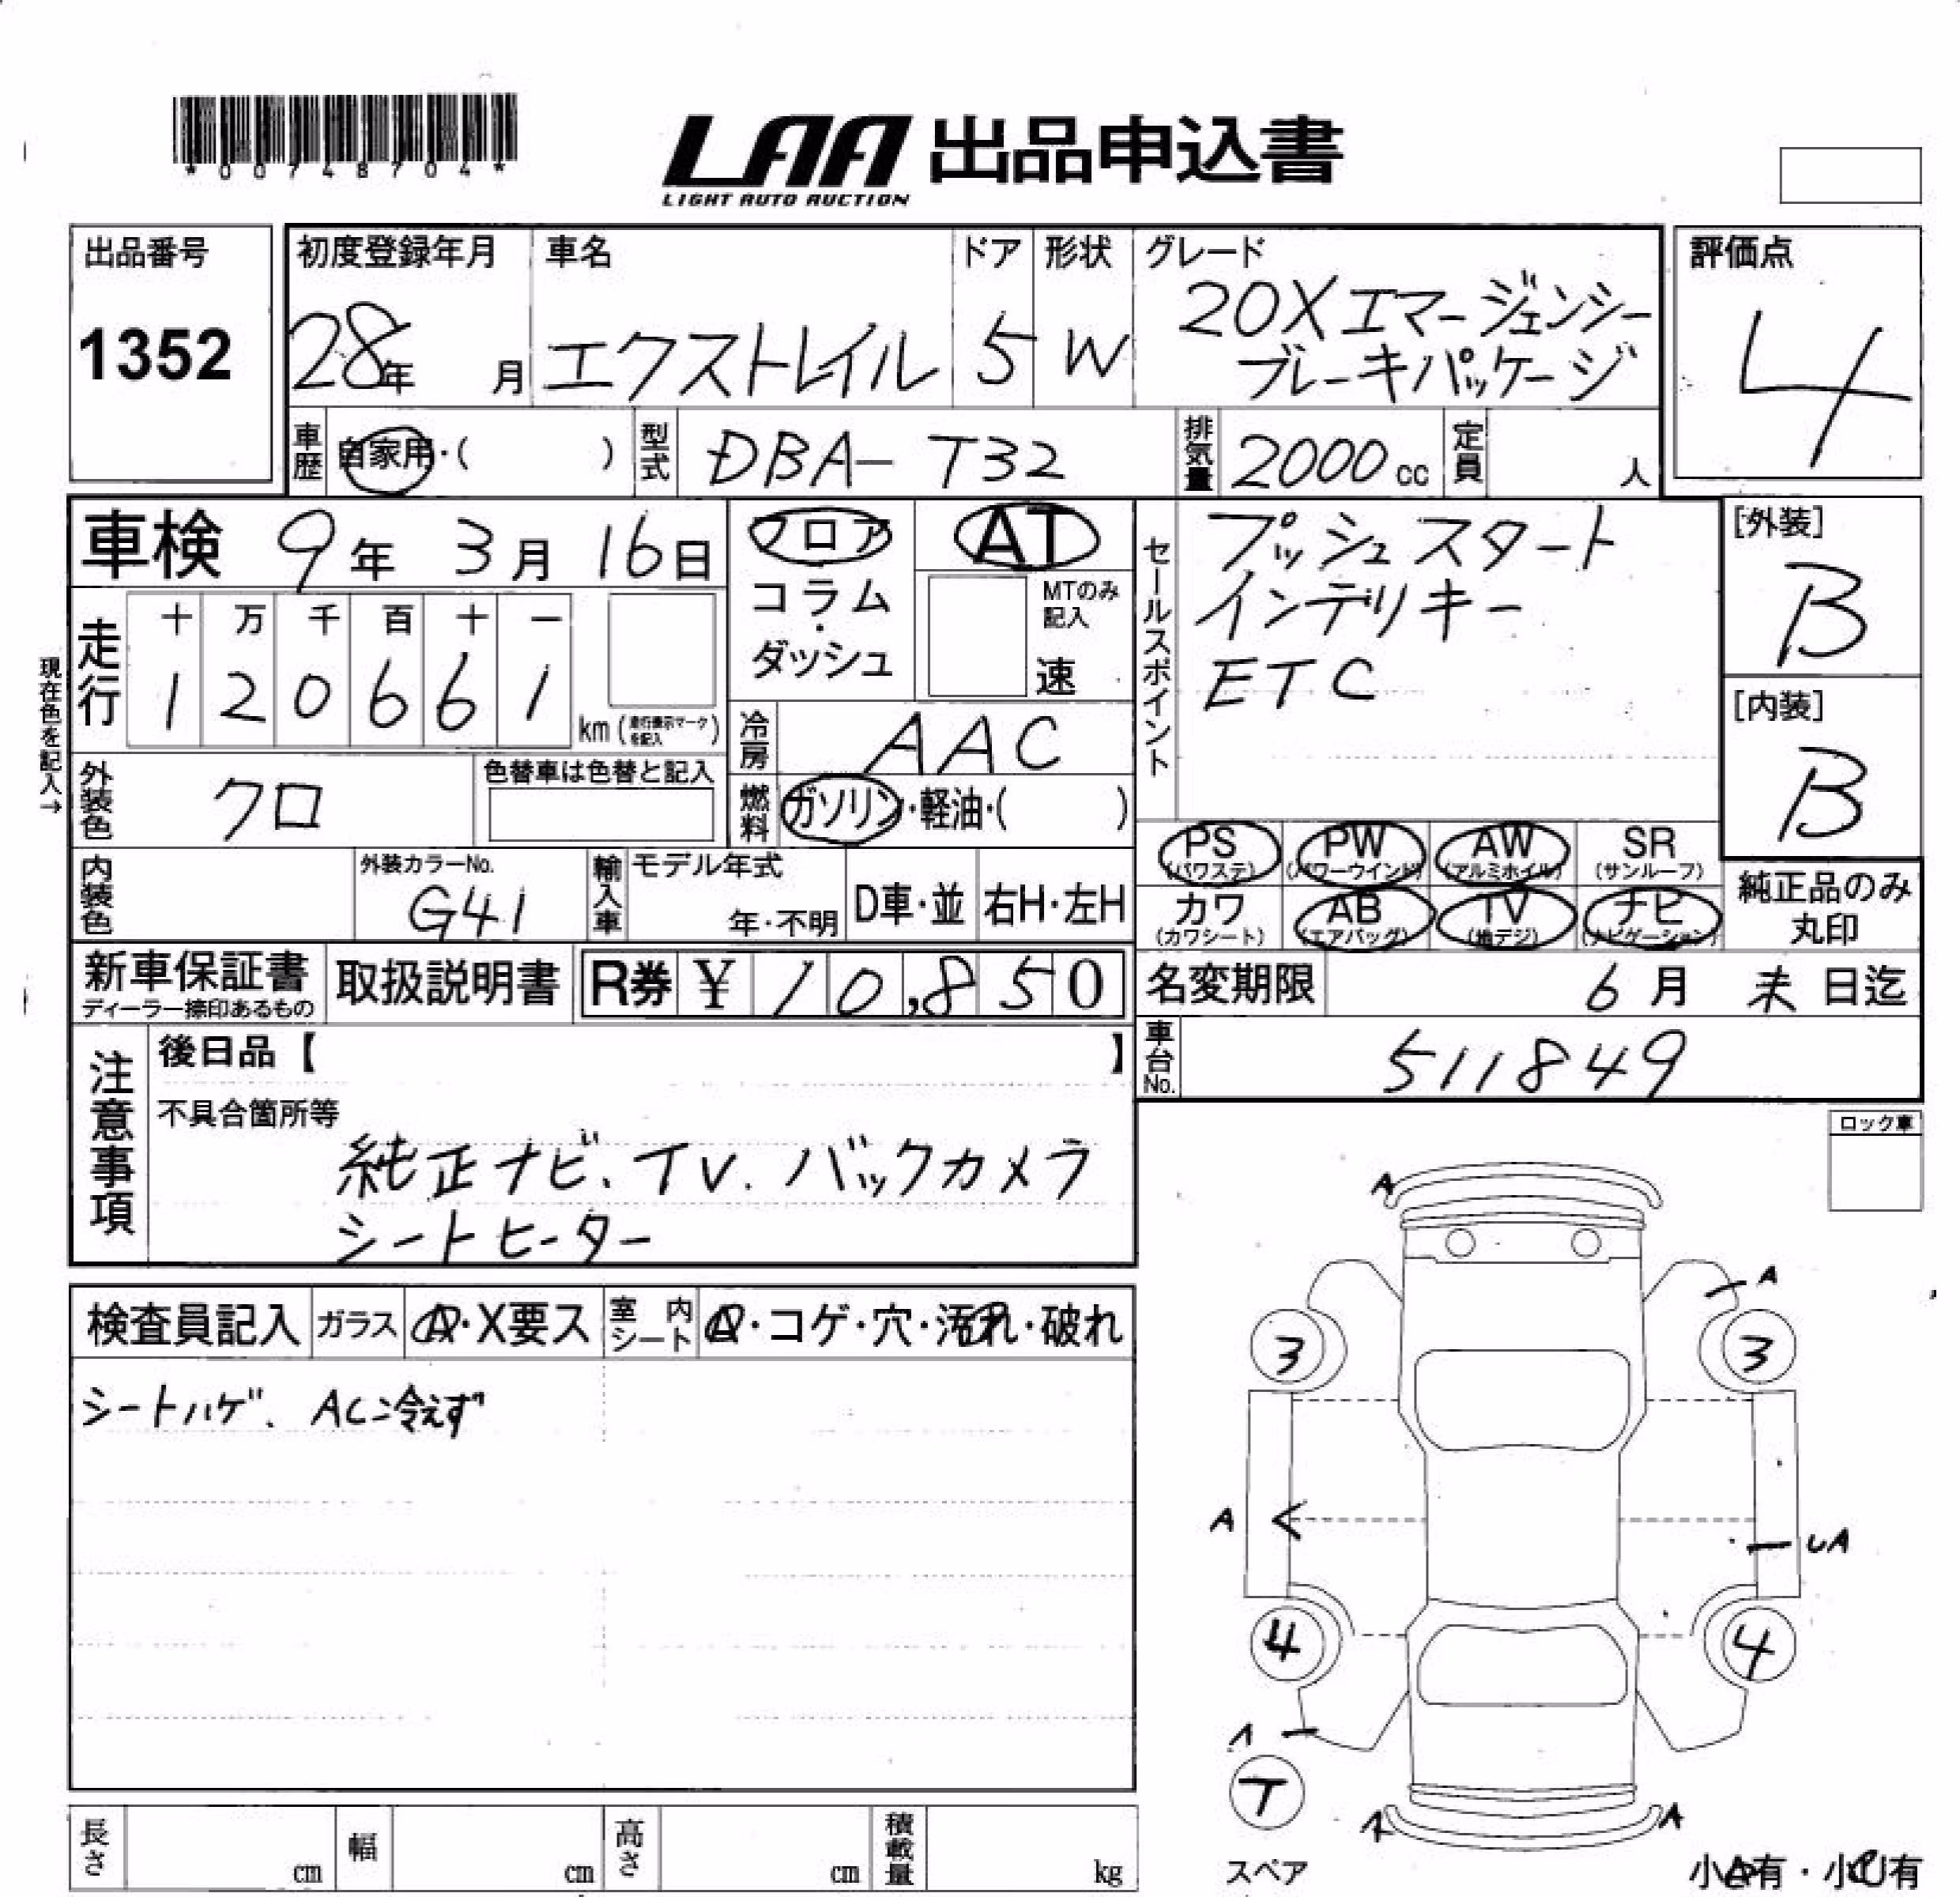 *00748704*
LAA 出品申込書
LIGHT AUTO AUCTION
出品番号
1352
初度登録年月
28年 月
車名
エクストレイル
ドア
5
形状
W
グレード
20Xエマージェンシー
ブレーキパッケージ
評価点
4
車歴
自家用・( )
型式
DBA-T32
排気量
2000cc
定員
人
車検 9年 3月 16日
フロア
コラム
・
ダッシュ
AT
MTのみ
記入
速
セールスポイント
プッシュスタート
インテリキー
ETC
[外装]
B
[内装]
B
現在色を記入→
走行
十 万 千 百 十 一
1 2 0 6 6 1
km (走行表示マークを記入)
冷房
AAC
外装色
クロ
色替車は色替と記入
燃料
ガソリン・軽油・( )
PS
(パワステ)
PW
(パワーウインド)
AW
(アルミホイル)
SR
(サンルーフ)
カワ
(カワシート)
AB
(エアバッグ)
TV
(地デジ)
ナビ
(ナビゲーション)
純正品のみ
丸印
内装色
外装カラーNo.
G41
輸入車
モデル年式
年・不明
D車・並
右H・左H
新車保証書
ディーラー捺印あるもの
取扱説明書
R券 ¥ 10,850
名変期限
6月 末 日迄
車台No.
511849
注意事項
後日品【 】
不具合箇所等
純正ナビ、TV、バックカメラ
シートヒーター
ロック車
検査員記入
ガラス
A・X要ス
室内シート
・コゲ・穴・汚れ・破れ
シートハゲ、AC冷えず
A
A
3
3
A
UA
4
4
A
T
スペア
A
A
小A有・小U有
長さ
cm
幅
cm
高さ
cm
積載量
kg